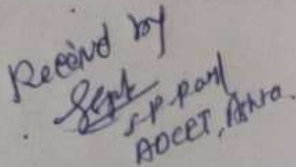 Received by
S.P. Paul
ADCET, Ashta.